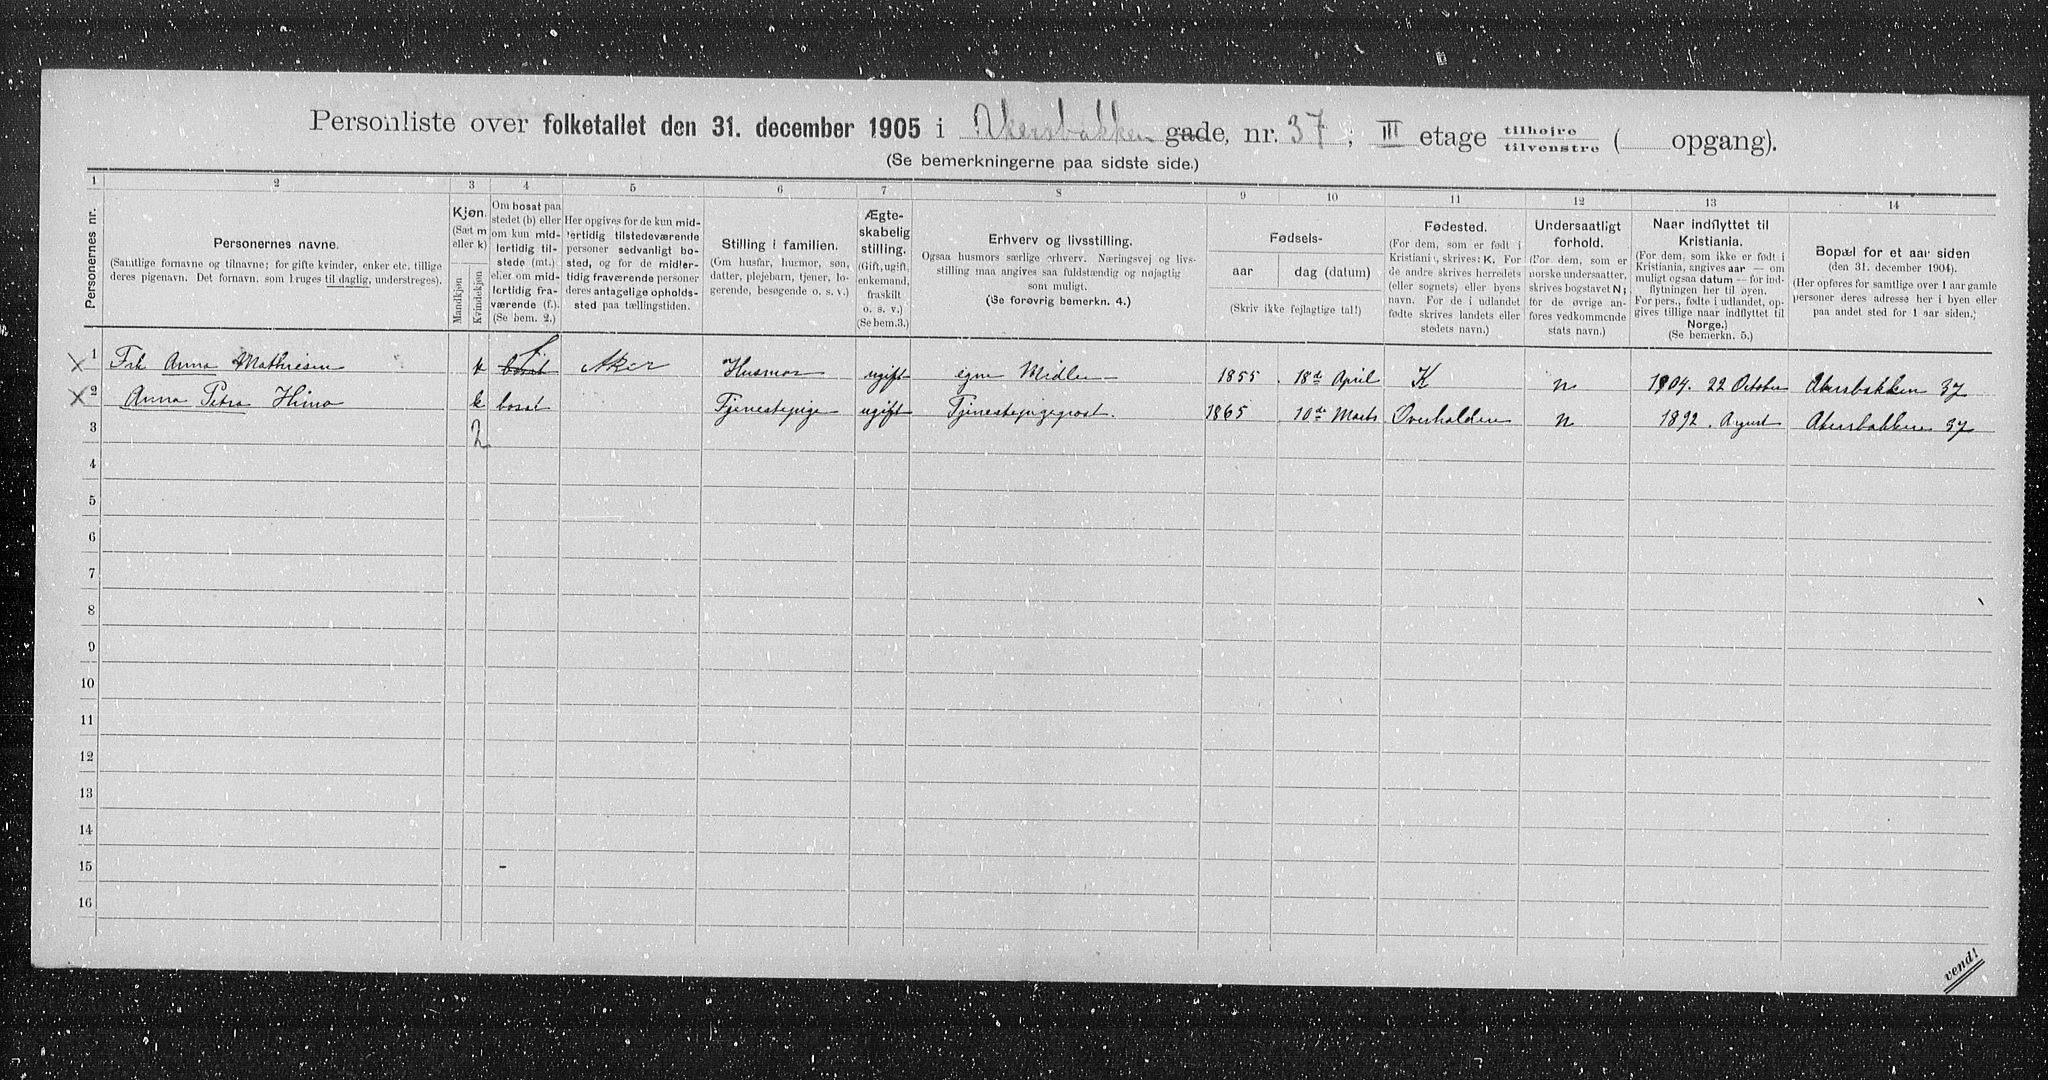 Personliste over folketallet den 31. december 1905 i Akersbakken gade, nr. 37; III etage tilhøjre tilvenstre ( opgang).
(Se bemerkningerne paa sidste side.)
1 2 3 4 5 6 7 8 9 10 11 12 13 14
Personernes nr.
Personernes navne.
(Samtlige fornavne og tilnavne; for gifte kvinder, enker etc. tillige
deres pigenavn. Det fornavn, som bruges til daglig, understreges).
Kjøn.
(Sæt m
eller k)
Mandkjøn
Kvindekjøn
Om bosat paa
stedet (b) eller
om kun mid-
lertidig til-
stede (mt.)
eller om mid-
lertidig fra-
værende (f.).
(Se bem. 2.)
Her opgives for de kun mid-
lertidig tilstedeværende
personer sedvanligt bo-
sted, og for de midler-
tidig fraværende personer
deres antagelige opholds-
sted paa tællingstiden.
Stilling i familien.
(Om husfar, husmor, søn,
datter, plejebarn, tjener, lo-
gerende, besøgende o. s. v.)
Ægte-
skabelig
stilling.
(Gift, ugift,
enkemand,
fraskilt
o. s. v.)
(Se bem. 3.)
Erhverv og livsstilling.
Ogsaa husmors særlige erhverv. Næringsvej og livs-
stilling maa angives saa fuldstændig og nøjagtig
som muligt.
(Se forøvrig bemerkn. 4.)
Fødsels-
aar dag (datum)
(Skriv ikke fejlagtige tal!)
Fødested.
(For dem, som er født i
Kristiania, skrives: K. For
de andre skrives herredets
(eller sognets) eller byens
navn. For de i udlandet
fødte skrives landets eller
stedets navn.)
Undersaatligt
forhold.
(For dem, som er
norske undersaatter,
skrives bogstavet N;
for de øvrige an-
føres vedkommende
stats navn.)
Naar indflyttet til
Kristiania.
(For dem, som ikke er født i
Kristiania, angives aar — om
muligt ogsaa datum — for ind-
flytningen her til byen.
For pers., fødte i udlandet, op-
gives tillige naar indflyttet til
Norge.)
(Se bemerkn. 5.)
Bopæl for et aar siden
(den 31. december 1904.)
(Her opføres for samtlige over 1 aar gamle
personer deres adresse her i byen eller
paa andet sted for 1 aar siden.)
1 Frk Anna Mathiesen k bosat f Aker Husmor ugift egne Midler 1855 18de April K N 1904. 22 October Akersbakken 37
2 Anna Petra Himo k bosat Tjenestepige ugift Tjenestepigepost. 1865 10de Marts Overhalden N 1892. August Akersbakken 37
3 2
4
5
6
7
8
9
10
11
12
13
14
15
16
vend!